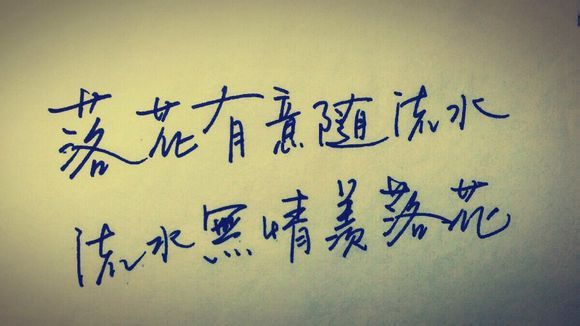 落花有意随流水
流水無情羡落花